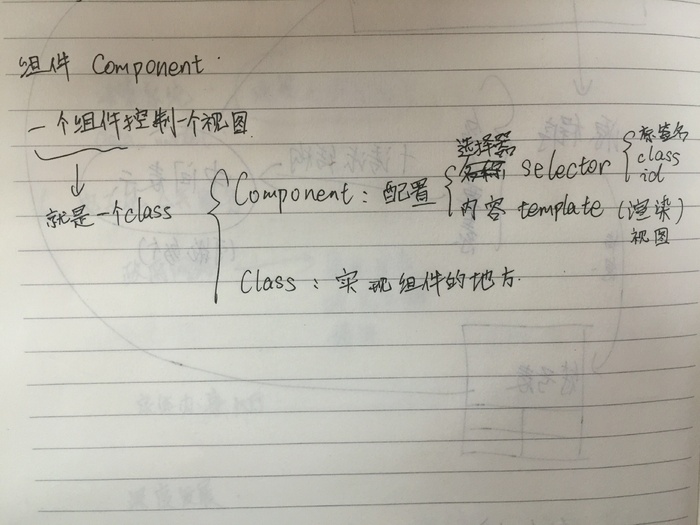 组件 Component
一个组件控制一个视图
就是一个class
Component：配置
选择器 selector
标签名
class
id
内容 template (渲染)
视图
Class：实现组件的地方.